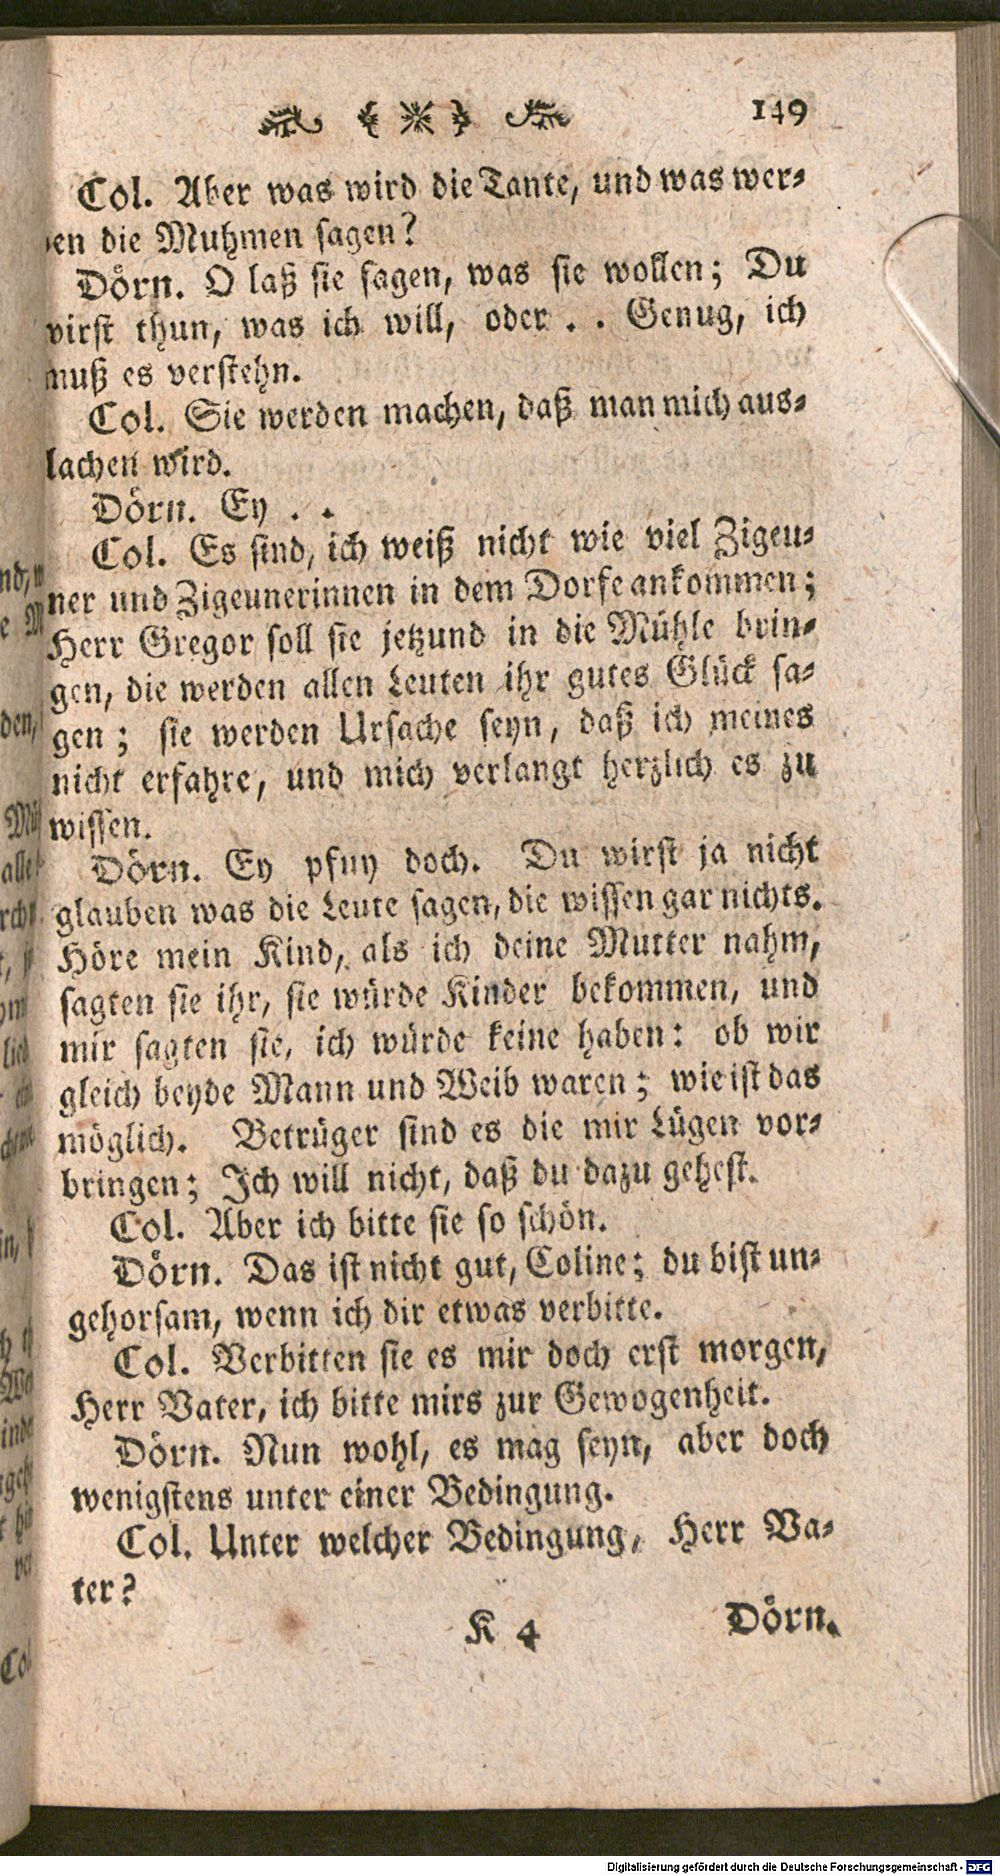 149
Col. Aber was wird die Tante, und was wer-
en die Muhmen sagen?
Dörn. O laß sie sagen, was sie wollen; Du
wirst thun, was ich will, oder . . Genug, ich
muß es verstehn.
Col. Sie werden machen, daß man mich aus-
lachen wird.
Dörn. Ey . .
Col. Es sind, ich weiß nicht wie viel Zigeu-
ner und Zigeunerinnen in dem Dorfe ankommen;
Herr Gregor soll sie jetzund in die Mühle brin-
gen, die werden allen Leuten ihr gutes Glück sa-
gen; sie werden Ursache seyn, daß ich meines
nicht erfahre, und mich verlangt herzlich es zu
wissen.
Dörn. Ey pfuy doch. Du wirst ja nicht
glauben was die Leute sagen, die wissen gar nichts.
Höre mein Kind, als ich deine Mutter nahm,
sagten sie ihr, sie würde Kinder bekommen, und
mir sagten sie, ich würde keine haben: ob wir
gleich beyde Mann und Weib waren; wie ist das
möglich. Betrüger sind es die mir Lügen vor-
bringen; Ich will nicht, daß du dazu gehest.
Col. Aber ich bitte sie so schön.
Dörn. Das ist nicht gut, Coline; du bist un-
gehorsam, wenn ich dir etwas verbitte.
Col. Verbitten sie es mir doch erst morgen,
Herr Vater, ich bitte mirs zur Gewogenheit.
Dörn. Nun wohl, es mag seyn, aber doch
wenigstens unter einer Bedingung.
Col. Unter welcher Bedingung, Herr Va-
ter?
K 4 Dörn.
Digitalisierung gefördert durch die Deutsche Forschungsgemeinschaft - DFG